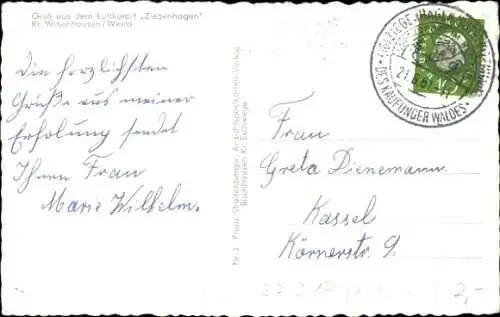 Gruß aus dem Luftkurort „Ziegenhagen"
Kr. Witzenhausen/Werra
Die herzlichsten
Grüße aus meiner
Erholung sendet
Ihnen Frau
Marie Wilhelm.
Nr. 3 Franz Ansichtspostkarten-Verlag
Bischhausen Kr. Eschwege
DES KAUFUNGER WALDES
21.
Frau
Greta Dienemann
Kassel
Körnerstr. 9.
2,-